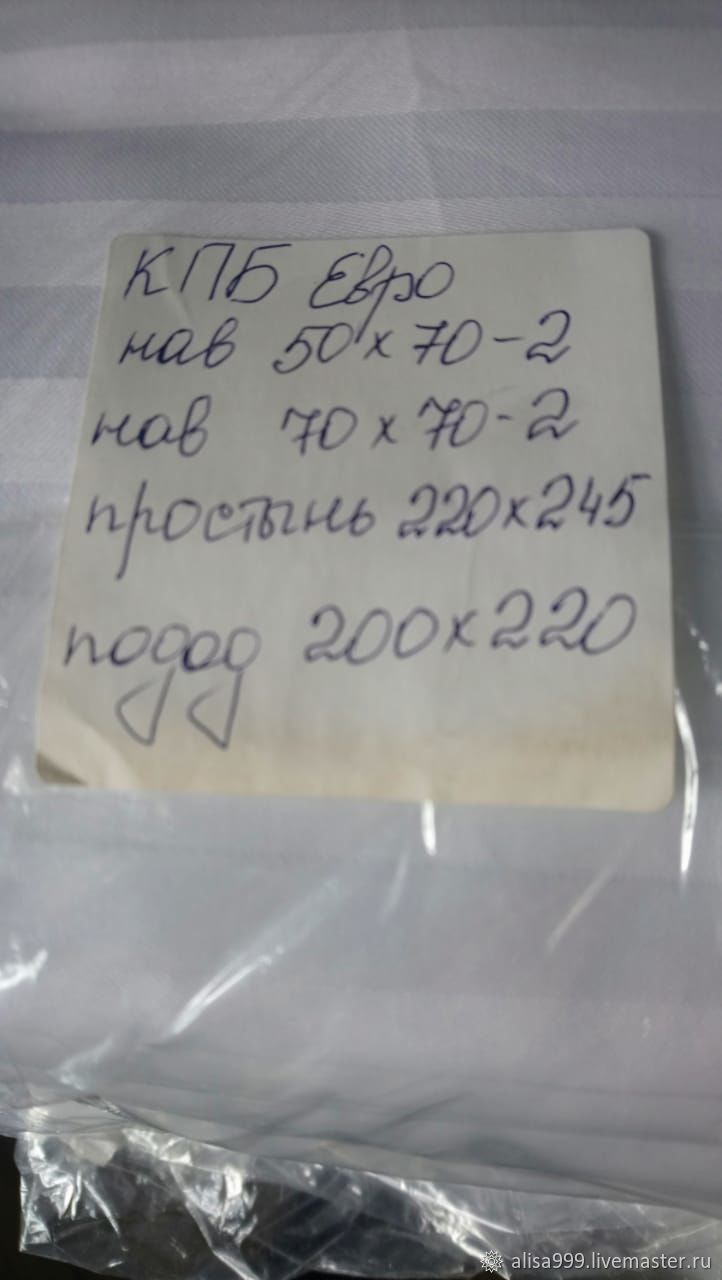 КПБ Евро
нав 50х70-2
нав 70х70-2
простынь 220х245
подод 200х220
alisa999.livemaster.ru